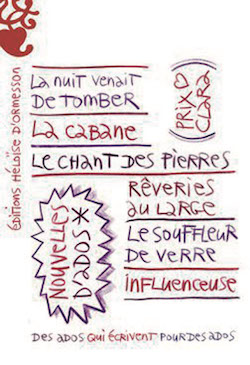 La nuit venait
de tomber
La cabane
Le chant des pierres
Rêveries
au large
Le souffleur
de verre
Influenceuse
PRIX
CLARA
ÉDITIONS HÉLOÏSE D'ORMESSON
NOUVELLES
D'ADOS *
DES ADOS QUI ÉCRIVENT POUR DES ADOS